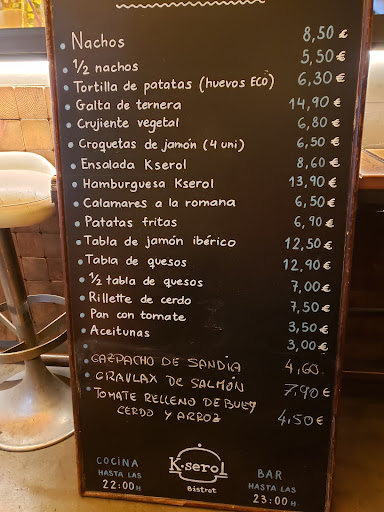 Nachos 8,50 €
1/2 nachos 5,50 €
Tortilla de patatas (huevos ECO) 6,30 €
Galta de ternera 14,90 €
Crujiente vegetal 6,80 €
Croquetas de jamón (4 uni) 6,50 €
Ensalada Kserol 8,60 €
Hamburguesa Kserol 13,90 €
Calamares a la romana 6,50 €
Patatas fritas 6,90 €
Tabla de jamón ibérico 12,50 €
Tabla de quesos 12,90 €
1/2 tabla de quesos 7,00 €
Rillette de cerdo 7,50 €
Pan con tomate 3,50 €
Aceitunas 3,00 €
GAZPACHO DE SANDIA 4,60
GRAVLAX DE SALMÓN 7,90 €
TOMATE RELLENO DE BUEY
CERDO Y ARROZ 4,50 €
COCINA
HASTA LAS
22:00 H
K·serol
Bistrot
BAR
HASTA LAS
23:00 H